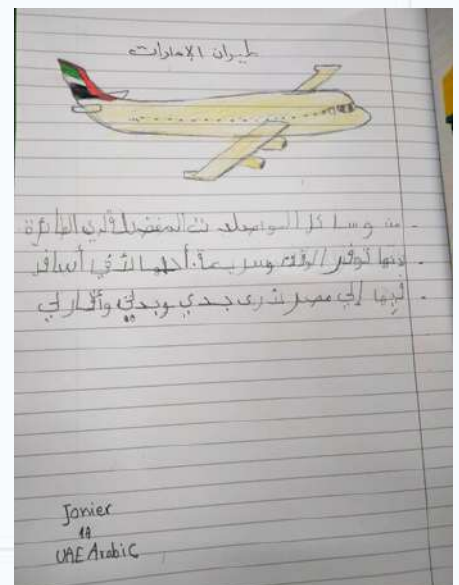 طيران الإمارات
- من وسائل المواصلات المفضلة لدي الطائرة
- لانها توفر الوقت وسريعة. أسافر
- فيها إلي مصر جدي وجدتي
Janier
1A
UAE Arabic